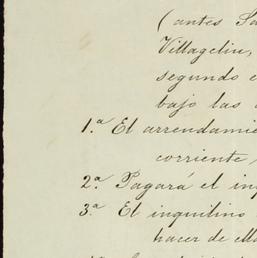 (antes Sa
Villageliu,
segundo e
bajo las
1.ª El arrendamie
corriente,
2ª Pagará el inq
3ª El inquilino
hacer de ella